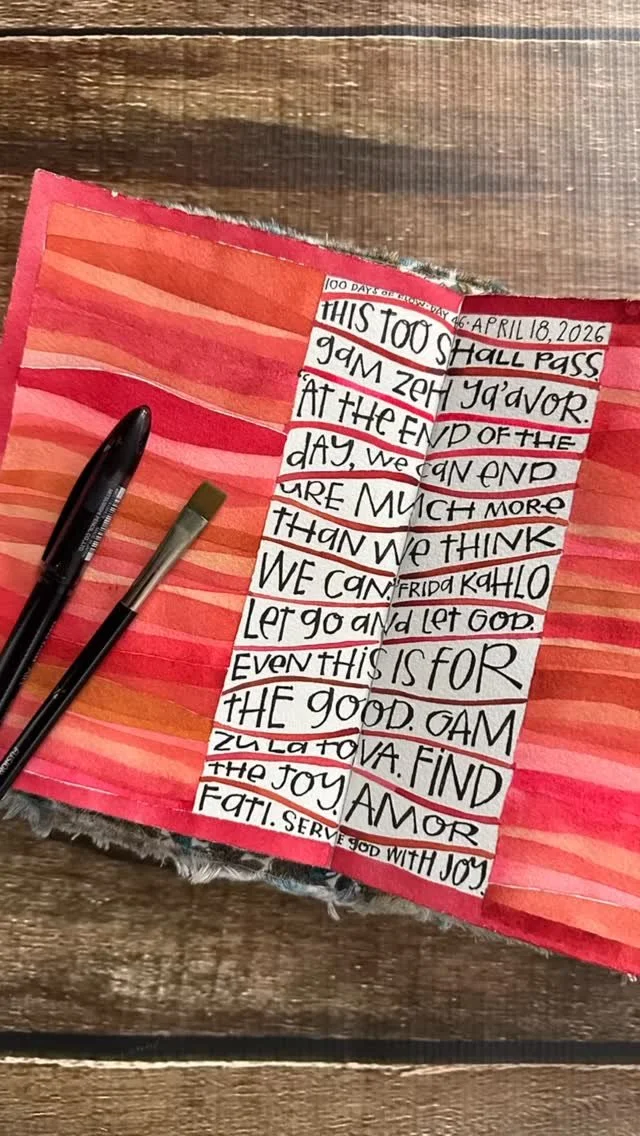 100 DAYS OF FLOW • DAY 46 • APRIL 18, 2026
THIS TOO SHALL PASS.
gam zeh ya'avor.
"AT THE END OF THE
day, we can end
ure much more
than we think
we can." FRIDA KAHLO
Let go and let GOD.
EVEN THIS IS FOR
THE good. GAM
ZU LA TOVA. FIND
THE JOY. AMOR
FATI. SERVE GOD WITH JOY.